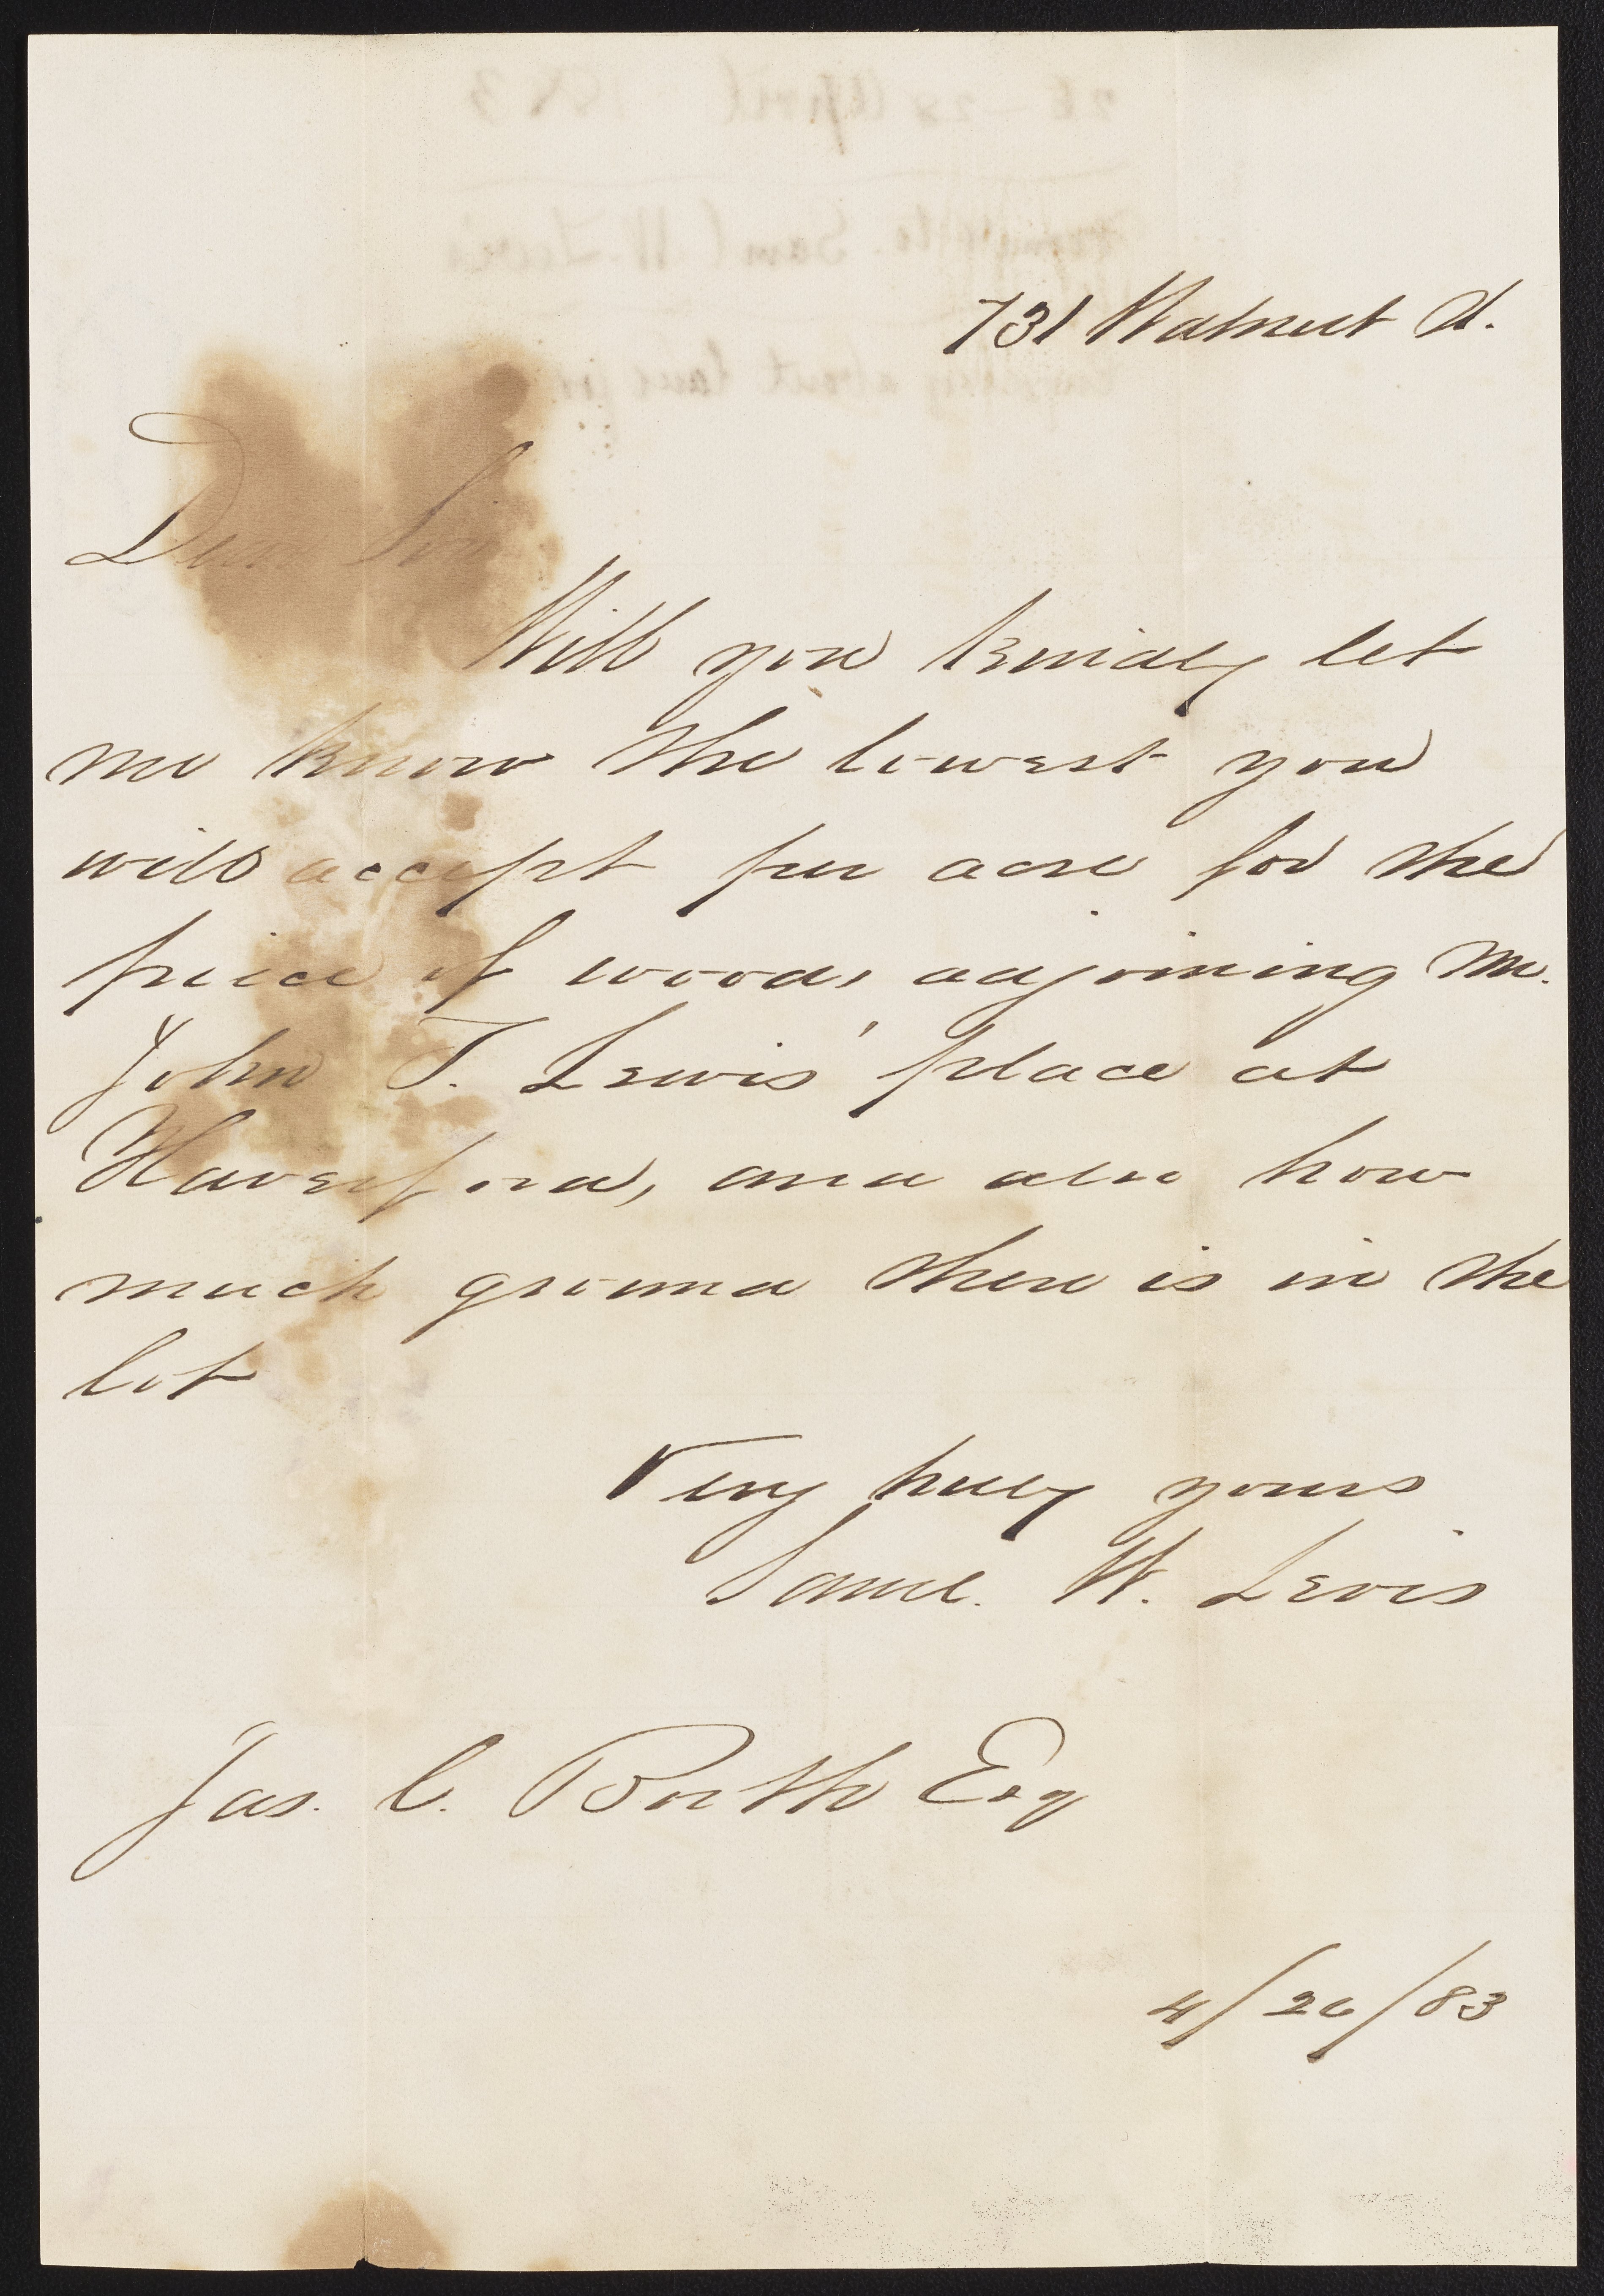 731 Walnut St.
Dear Sir
Will you kindly let
me know the lowest you
will accept per acre for the
piece of woods adjoining Mr.
John T. Lewis' place at
Haverford, and also how
much ground there is in the
lot
Very truly yours
Saml. W. Lewis
Jas. C. Booth Esq
4/26/83